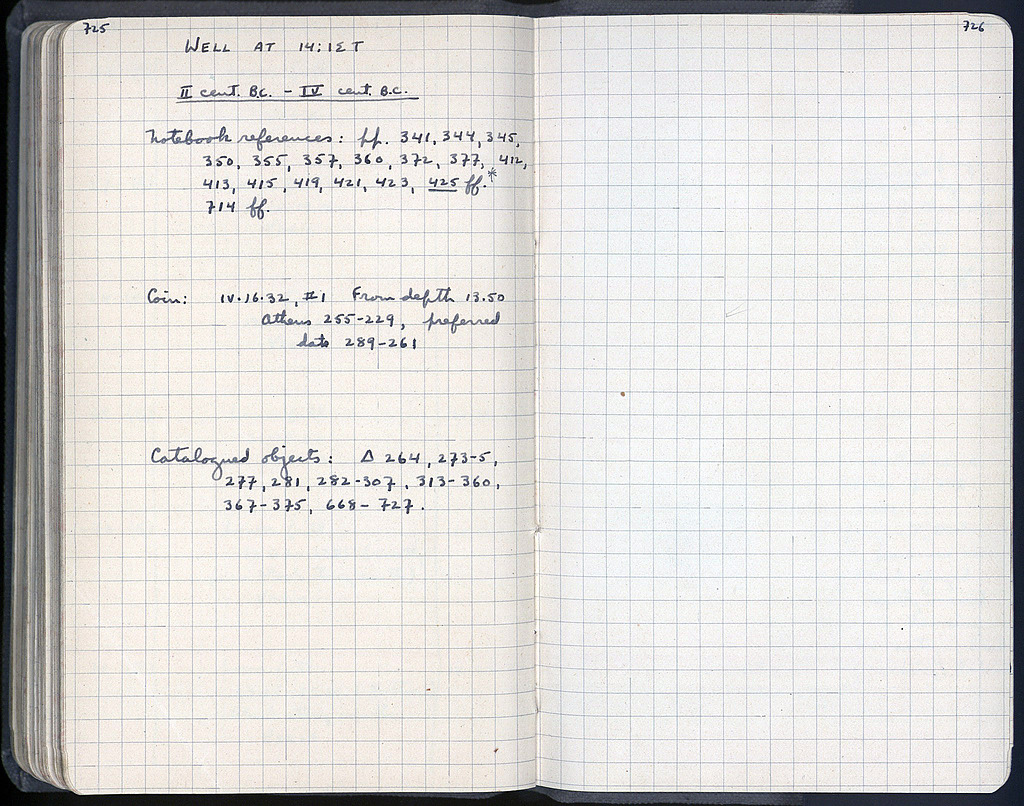 725
WELL AT 14:ΙΣΤ
II cent. B.C. - IV cent. B.C.
Notebook references: pp. 341, 344, 345,
350, 355, 357, 360, 372, 377, 412,
413, 415, 419, 421, 423, 425 ff.*
714 ff.
Coin: IV·16·32, #1 From depth 13.50
Athens 255-229, preferred
date 289-261
Catalogued objects: Δ 264, 273-5,
277, 281, 282-307, 313-360,
367-375, 668-727.
726